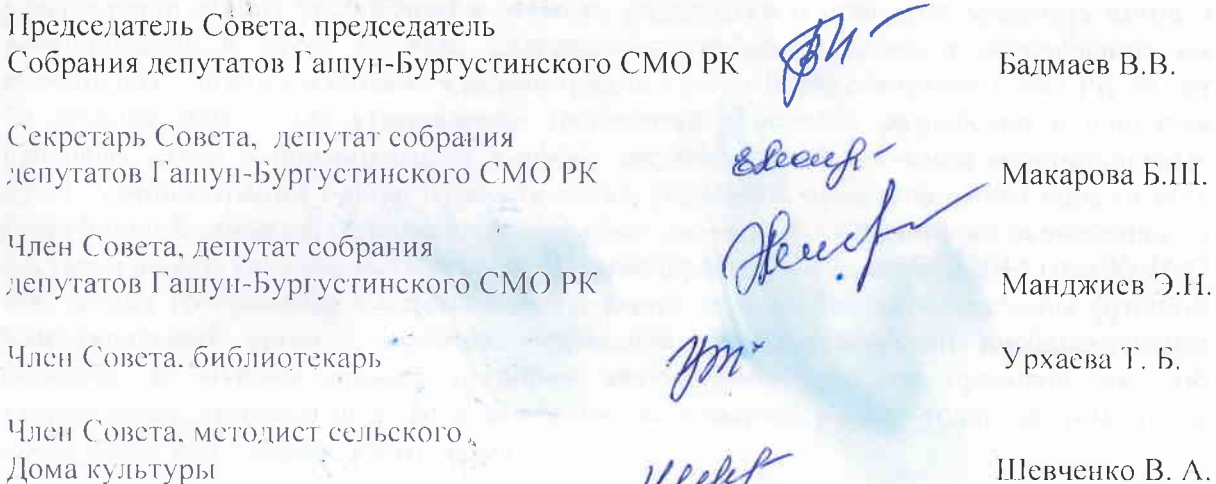 Председатель Совета, председатель
Собрания депутатов Гашун-Бургустинского СМО РК Бадмаев В.В.
Секретарь Совета, депутат собрания
депутатов Гашун-Бургустинского СМО РК Макарова Б.Ш.
Член Совета, депутат собрания
депутатов Гашун-Бургустинского СМО РК Манджиев Э.Н.
Член Совета, библиотекарь Урхаева Т. Б.
Член Совета, методист сельского
Дома культуры Шевченко В. А.